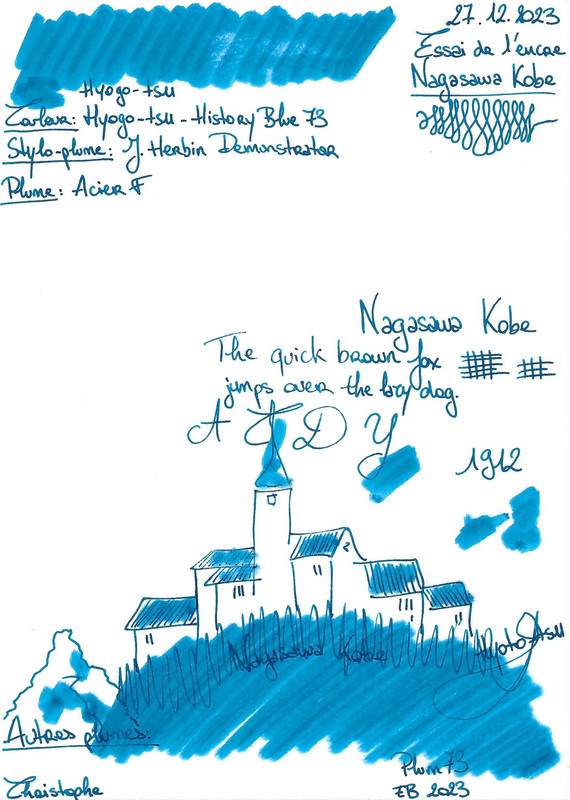 27.12.2023
Essai de l'encre
Nagasawa Kobe
Hyogo-tsu
Couleur: Hyogo-tsu - History Blue 73
Stylo-plume: J. Herbin Demonstrator
Plume: Acier F
Nagasawa Kobe
The quick brown fox
jumps over the lazy dog.
A J D Y
1912
Nagasawa Kobe
Hyoto-tsu
Autres plumes:
Plum 73
Christophe
EB 2023